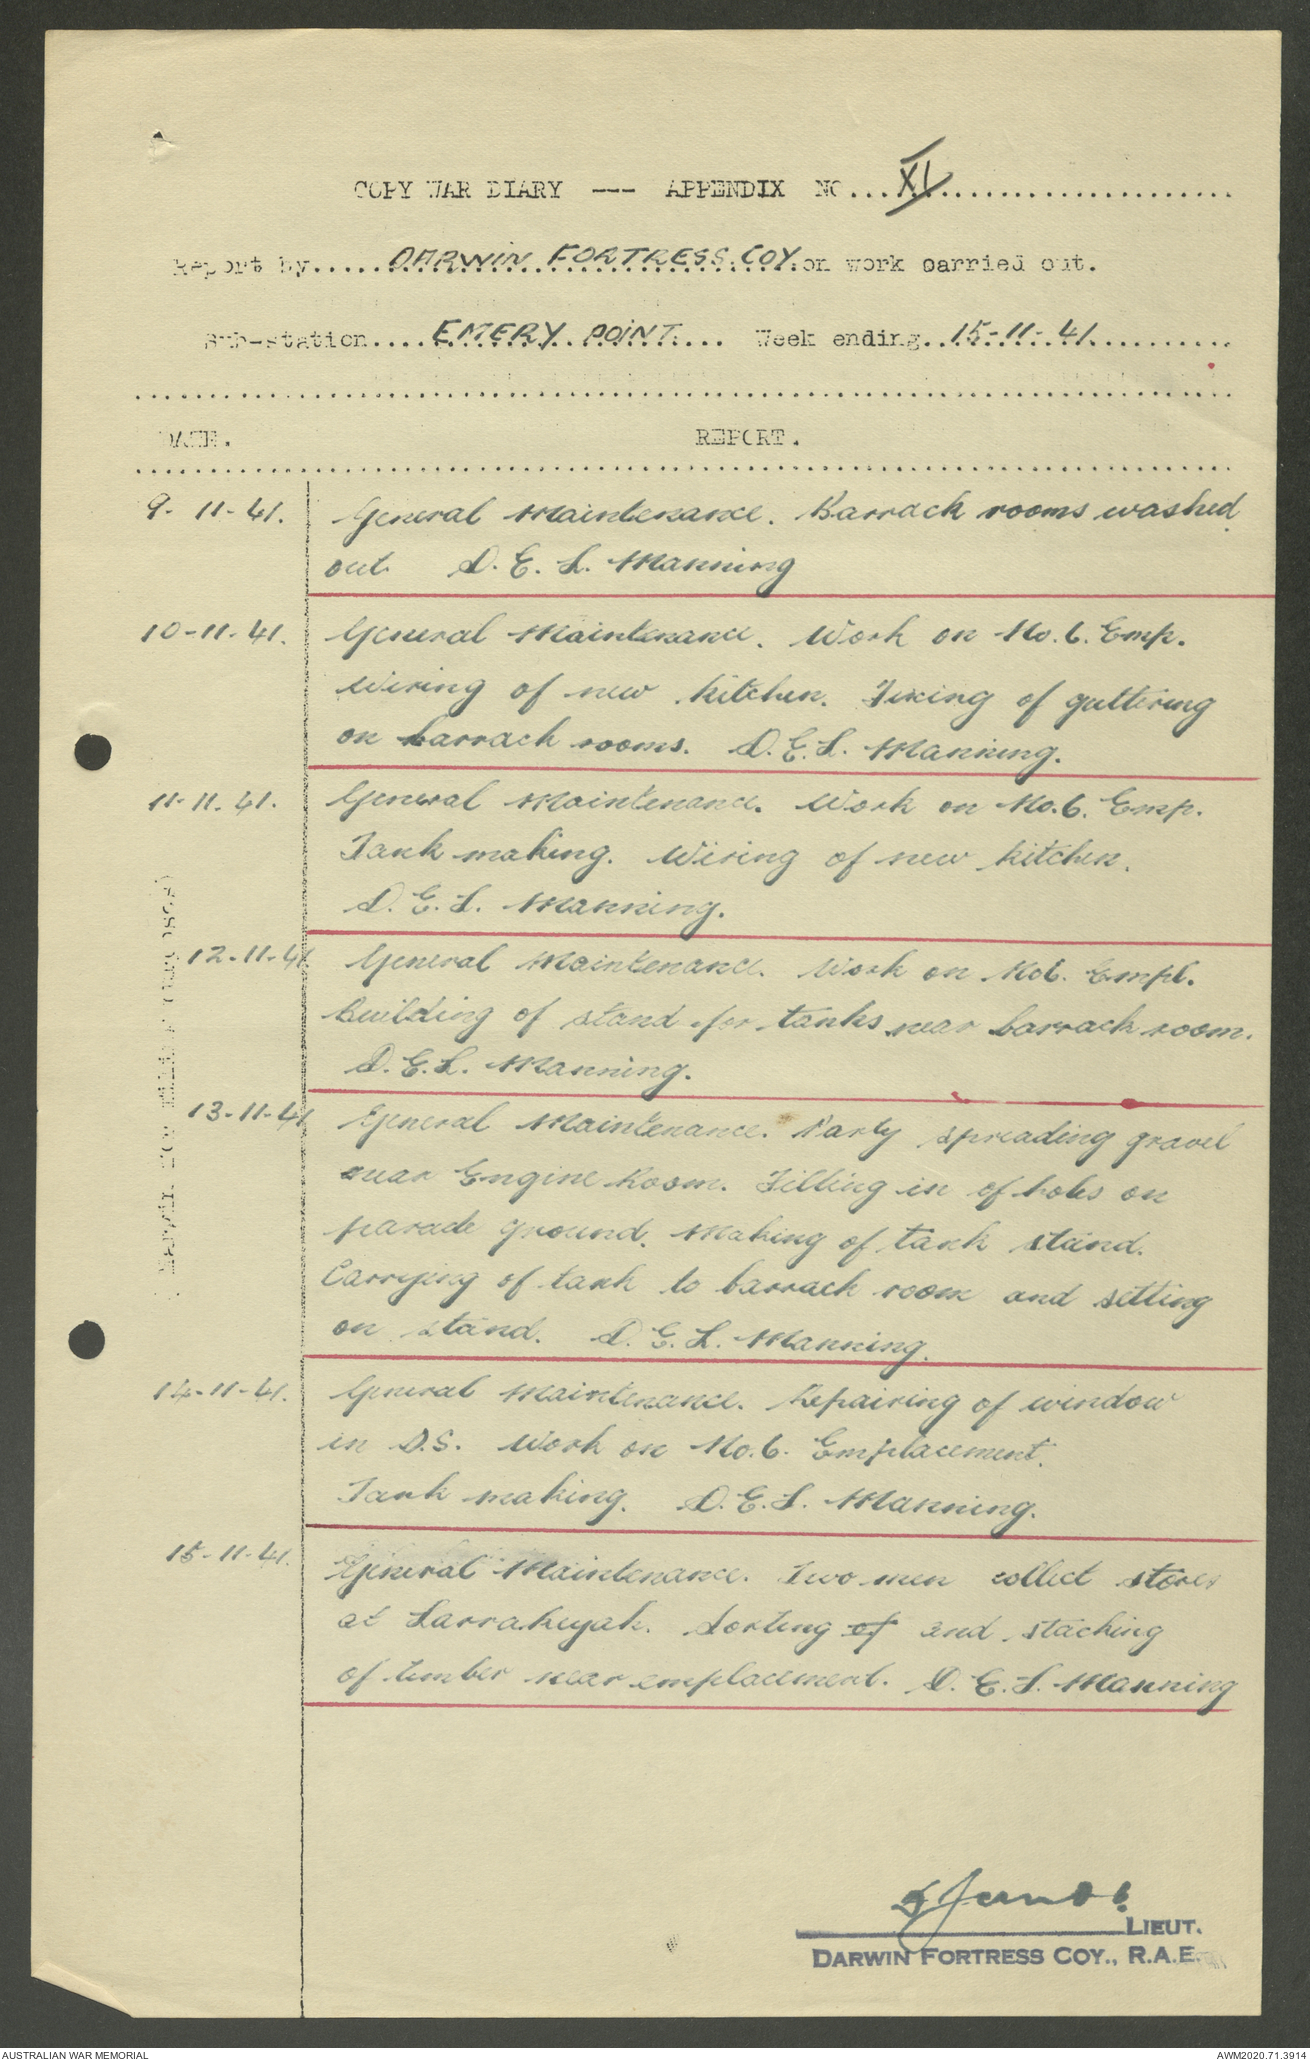 COPY WAR DIARY --- APPENDIX NO... XI ........................
Report by..... DARWIN FORTRESS COY. on work carried out.
Sub-station.... EMERY POINT.... Week ending.. 15-11-41..........
DATE. REPORT.
9-11-41. General Maintenance. Barrack rooms washed
out. D. E. L. Manning
10-11-41. General Maintenance. Work on No.6. Emp.
Wiring of new kitchen. Fixing of guttering
on barrack rooms. D.E.L. Manning.
11-11.41. General Maintenance. Work on No.6. Emp.
Tank making. Wiring of new kitchen.
D. E. L. Manning.
12-11-41. General Maintenance. Work on No6. Empl.
Building of stand for tanks near barrack room.
D.E.L. Manning.
13-11-41 General Maintenance. Party spreading gravel
near Engine Room. Filling in of holes on
parade ground. Making of tank stand.
Carrying of tank to barrack room and setting
on stand. D. E. L. Manning.
14-11-41. General Maintenance. Repairing of window
in D.S. Work on No.6. Emplacement.
Tank making. D.E.L. Manning.
15-11-41. General Maintenance. Two men collect stores
at Larrakeyah. Sorting of and stacking
of timber near emplacement. D. E. L. Manning
LIEUT.
DARWIN FORTRESS COY., R.A.E.
AUSTRALIAN WAR MEMORIAL AWM2020.71.3914